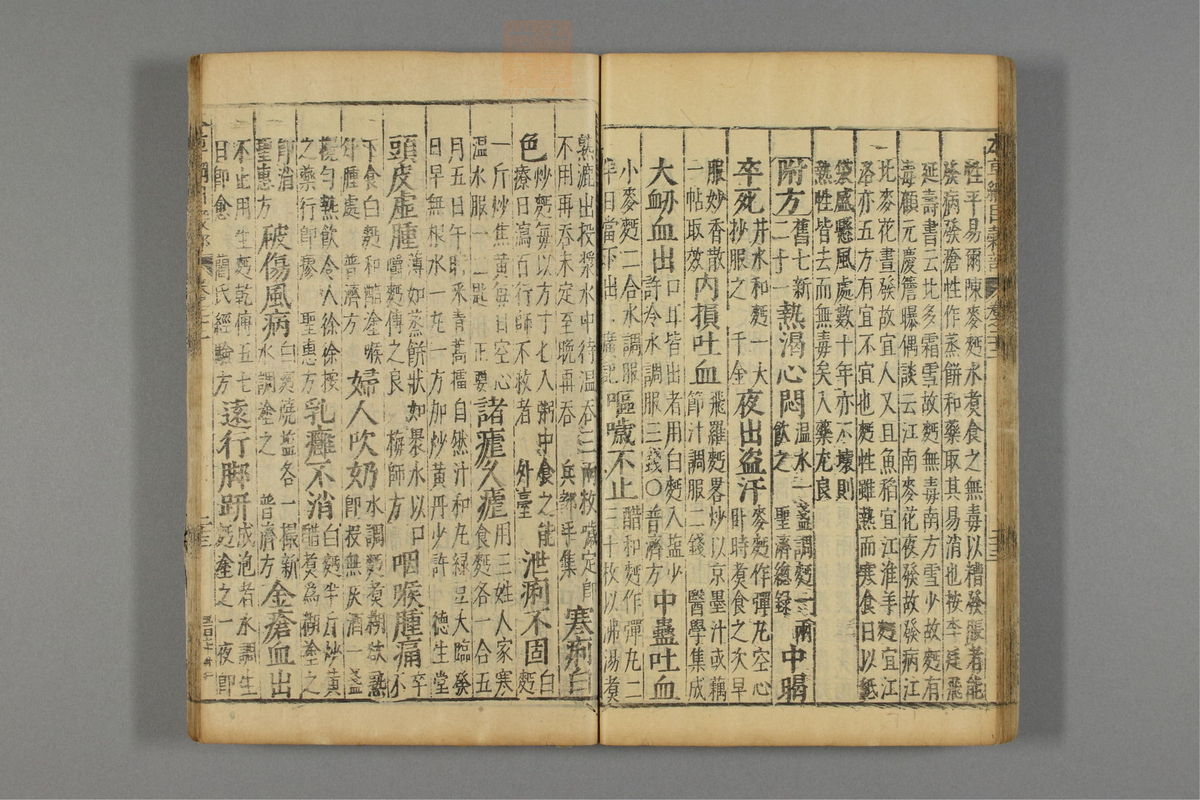 性平易爾陳麥麪水煮食之無毒以糟發脹者能
發病發瘡性作蒸餅和藥取其易消也按李廷飛
延壽書云北多霜雪故麪無毒南方雪少故麪有
毒顧元慶簷曝偶談云江南麥花夜發故發病江
北麥花晝發故宜人又且魚稻宜江淮羊麪宜江
洛亦五方有宜不宜也麪性雖熱而寒食日以紙
袋盛懸風處數十年亦不壞則
熱性皆去而無毒矣入藥尤良
附方 舊七新二十一 熱渴心悶 溫水一盞調麪一兩飲之 聖濟總錄 中暍
卒死 井水和麪一大抄服之 千金 夜出盜汗 麥麪作彈丸空心臥時煮食之次早
服妙香散一帖取效 內損吐血 飛羅麪畧炒以京墨汁或藕節汁調服二錢 醫學集成
大衄血出 口耳皆出者用白麪入鹽少許冷水調服三錢○普濟方 中蠱吐血
小麥麪二合水調服半日當下出 廣記 嘔噦不止 醋和麪作彈丸二三十枚以沸湯煮
熟漉出投漿水中待溫吞三兩枚噦定即不用再吞未定至晚再吞 兵部手集 寒痢白
色 炒麪每以方寸匕入粥中食之能療日瀉百行師不救者 外臺 泄痢不固 白麪
一斤炒焦黃每日空心溫水服一二匙 正要 諸瘧久瘧 用三姓人家寒食麪各一合五
月五日午時采青蒿擂自然汁和丸綠豆大臨發日早無根水一丸一方加炒黃丹少許 德生堂
頭皮虛腫 薄如蒸餅狀如裹水以口嚼麪傅之良 梅師方 咽喉腫痛 卒不
下食白麪和醋塗喉外腫處 普濟方 婦人吹奶 水調麪煮糊欲熟即投無灰酒一盞
攪勻熱飲令人徐徐按之藥行即瘳 聖惠方 乳癰不消 白麪半斤炒黃醋煮為糊塗之
即消 聖惠方 破傷風病 白麪燒鹽各一撮新水調塗之 普濟方 金瘡血出
不止用生麪乾傅五七日即愈 藺氏經驗方 遠行脚趼 成泡者水調生麪塗之一夜即